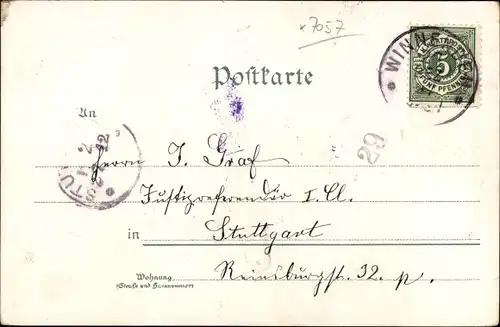 x7057
WINNENDEN
5
FÜNF PFENNIG
Postkarte
An
29
STU
2
22
Herrn J. Graf
Justizreferendär I. Cl.
in Stuttgart
Wohnung
(Straße und Hausnummer)
Reinsburgstr. 32. p.